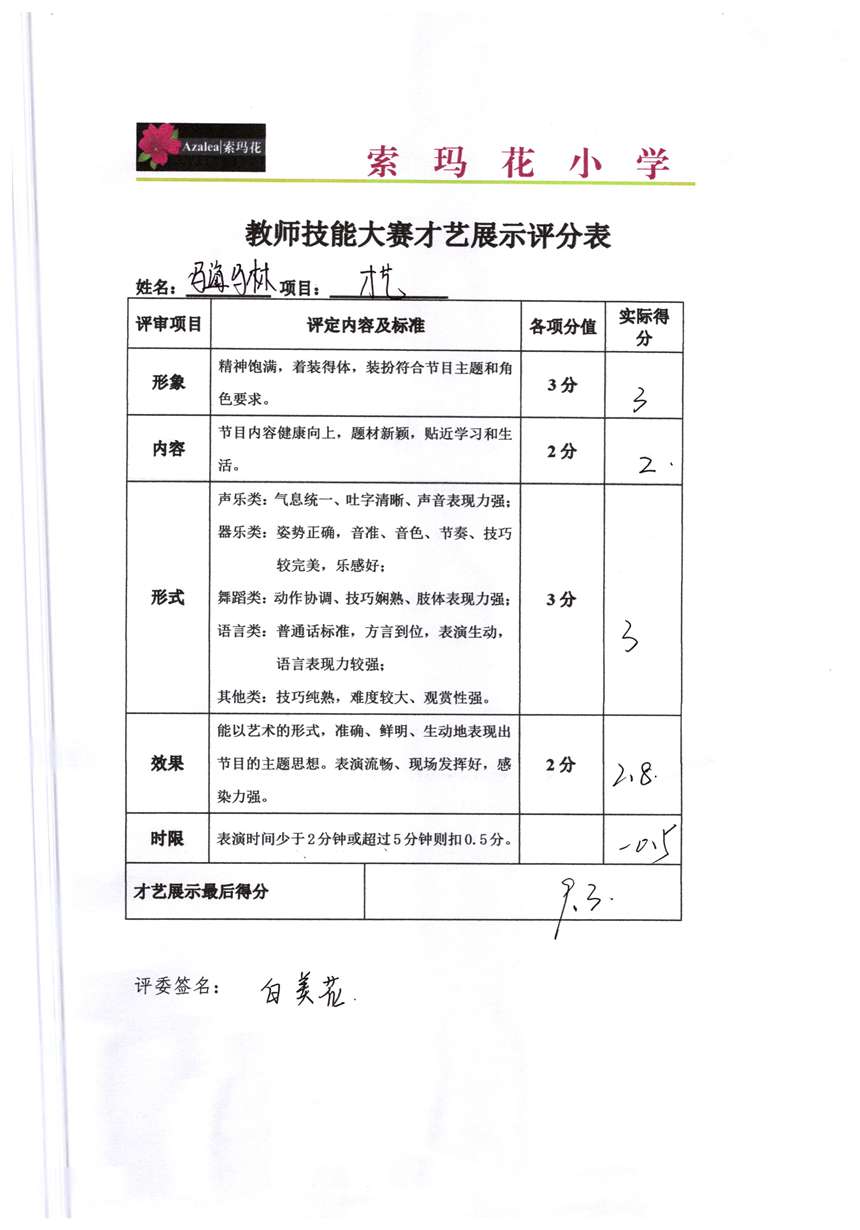 Azalea|索玛花
索 玛 花 小 学
教师技能大赛才艺展示评分表
姓名：马海马林 项目：才艺
评审项目 评定内容及标准 各项分值 实际得
分
形象 精神饱满，着装得体，装扮符合节目主题和角
色要求。 3分 3
内容 节目内容健康向上，题材新颖，贴近学习和生
活。 2分 2.
形式 声乐类：气息统一、吐字清晰、声音表现力强；
器乐类：姿势正确，音准、音色、节奏、技巧
较完美，乐感好；
舞蹈类：动作协调、技巧娴熟、肢体表现力强； 3分
语言类：普通话标准，方言到位，表演生动， 3
语言表现力较强；
其他类：技巧纯熟，难度较大、观赏性强。
能以艺术的形式，准确、鲜明、生动地表现出
效果 节目的主题思想。表演流畅、现场发挥好，感 2分 2.8.
染力强。
时限 表演时间少于2分钟或超过5分钟则扣0.5分。 -0.5
才艺展示最后得分 9.3.
评委签名： 白美花.